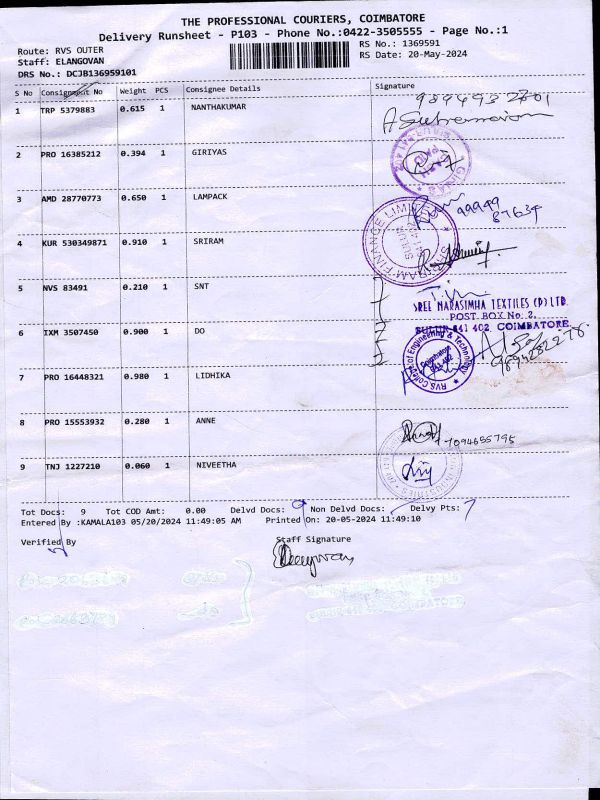 THE PROFESSIONAL COURIERS, COIMBATORE
Delivery Runsheet - P103 - Phone No.:0422-3505555 - Page No.:1
Route: RVS OUTER
RS No.: 1369591
Staff: ELANGOVAN
RS Date: 20-May-2024
DRS No.: DCJB136959101
S No Consignment No Weight PCS Consignee Details Signature
1 TRP 5379883 0.615 1 NANTHAKUMAR
2 PRO 16385212 0.394 1 GIRIYAS
3 AMD 28770773 0.650 1 LAMPACK
99949
87634
SHRIRAM FINANCE LIMITED
4 KUR 530349871 0.910 1 SRIRAM
5 NVS 83491 0.210 1 SNT
SREE NARASIMHA TEXTILES (P) LTD.
POST. BOX No. 2,
SULUR 641 402. COIMBATORE.
6 IXM 3507450 0.900 1 DO
9894282278
RVS College of Engineering & Technology
Coimbatore
641 402
7 PRO 16448321 0.980 1 LIDHIKA
8 PRO 15553932 0.280 1 ANNE
7094655795
9 TNJ 1227210 0.060 1 NIVEETHA
Tot Docs: 9 Tot COD Amt: 0.00 Delvd Docs: 9 Non Delvd Docs: Delvy Pts: 7
Entered By :KAMALA103 05/20/2024 11:49:05 AM Printed On: 20-05-2024 11:49:10
Verified By Staff Signature